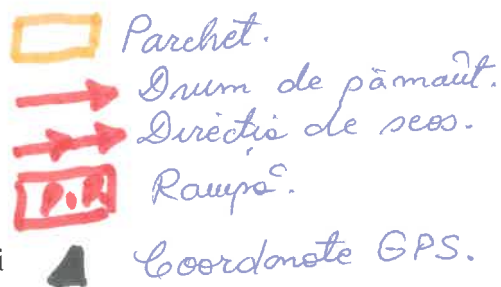 Parchet.
Drum de pământ.
Direcția de scos.
P.R
Rampă.
i
Coordonate GPS.